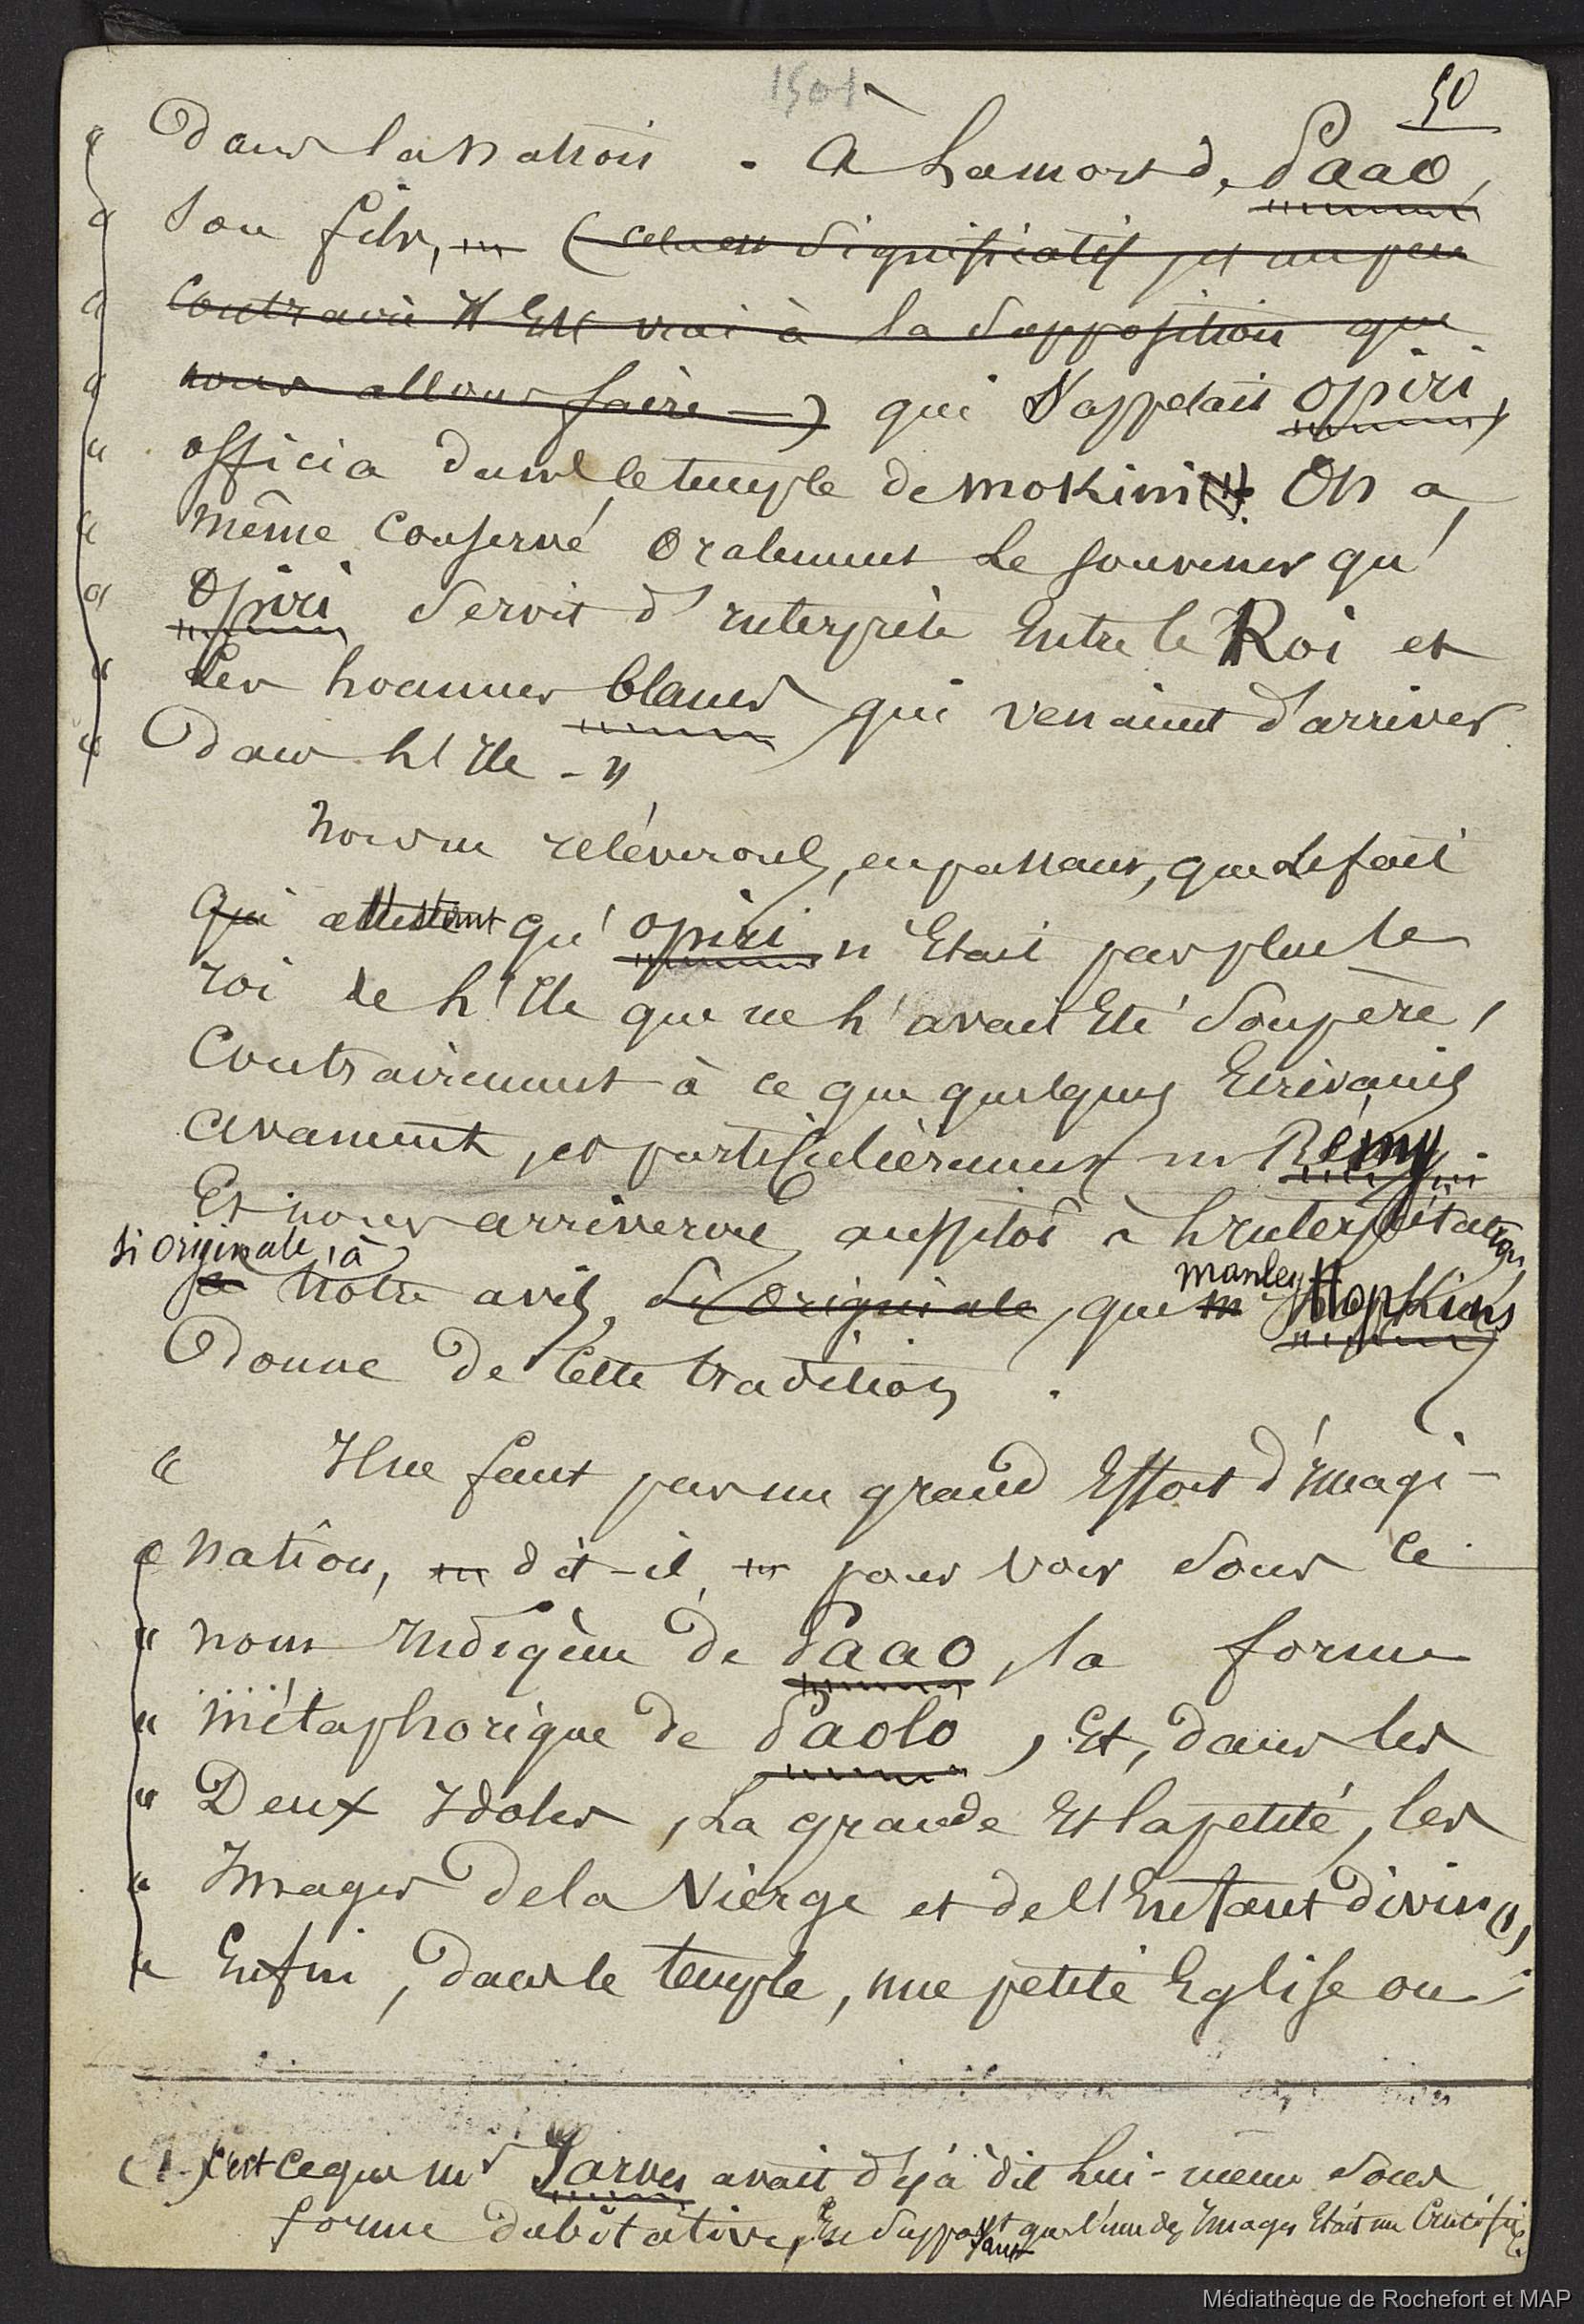 1501
50
« Dans la nation. A la mort de Paao,
« son fils, (cela est significatif et un peu
« contraire il est vrai à la supposition que
« nous allons faire —) qui s'appelait Opiri,
« officia dans le temple de Mokini. On a
« même conservé oralement le souvenir qu'
« Opiri servit d'interprète entre le Roi et
« les hommes blancs qui venaient d'arriver
« dans l'île - »
Nous ne relèverons, en passant, que le fait
qui attestent qu'Opiri n'était pas plus le
roi de l'île que ne l'avait été son père,
Contrairement à ce que quelques Ecrivains
avancent, et particulièrement m Rémy
Et nous arriverons aussitôt à l'interprétation,
si originale, à
a notre avis, si originale, que m Manley Hopkins
donne de cette tradition.
« Il ne faut pas un grand effort d'imagi-
« nation, dit-il, pour voir sous le
« nom indigène de Paao, la forme
« métaphorique de Paolo, Et, dans les
« Deux Idoles, la grande et la petite, les
« Images de la Vierge et de l'Enfant divin (1),
« Enfin, dans le temple, une petite Eglise ou
(1) c'est ce que Mr Jarves avait déjà dit lui-même sous
forme dubitative, En supposant que l'une des Images était un Crucifix.
Médiathèque de Rochefort et MAP